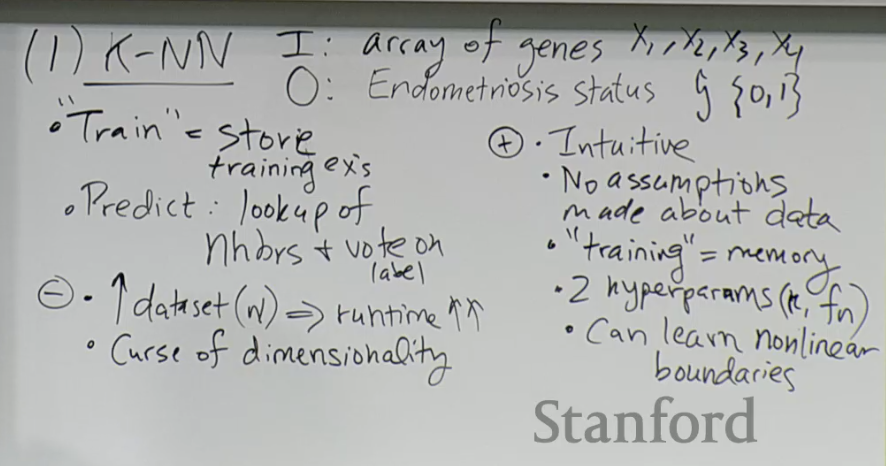 (1) K-NN I: array of genes X₁, X₂, X₃, X₄
O: Endometriosis status ŷ {0,1}
• "Train" = store
training ex's
• Predict: lookup of
nhbrs + vote on
label
⊖ • ↑ dataset (N) ⇒ runtime ↑↑
• Curse of dimensionality
⊕ • Intuitive
• No assumptions
made about data
• "training" = memory
• 2 hyperparams (k, fn)
• Can learn nonlinear
boundaries
Stanford